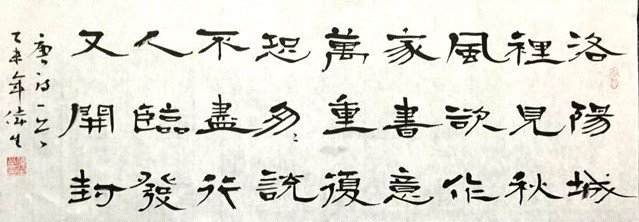 洛陽城
裡見秋
風欲作
家書意
萬重復
恐匆〻說
不盡行
人臨發
又開封
唐詩一首
乙未年